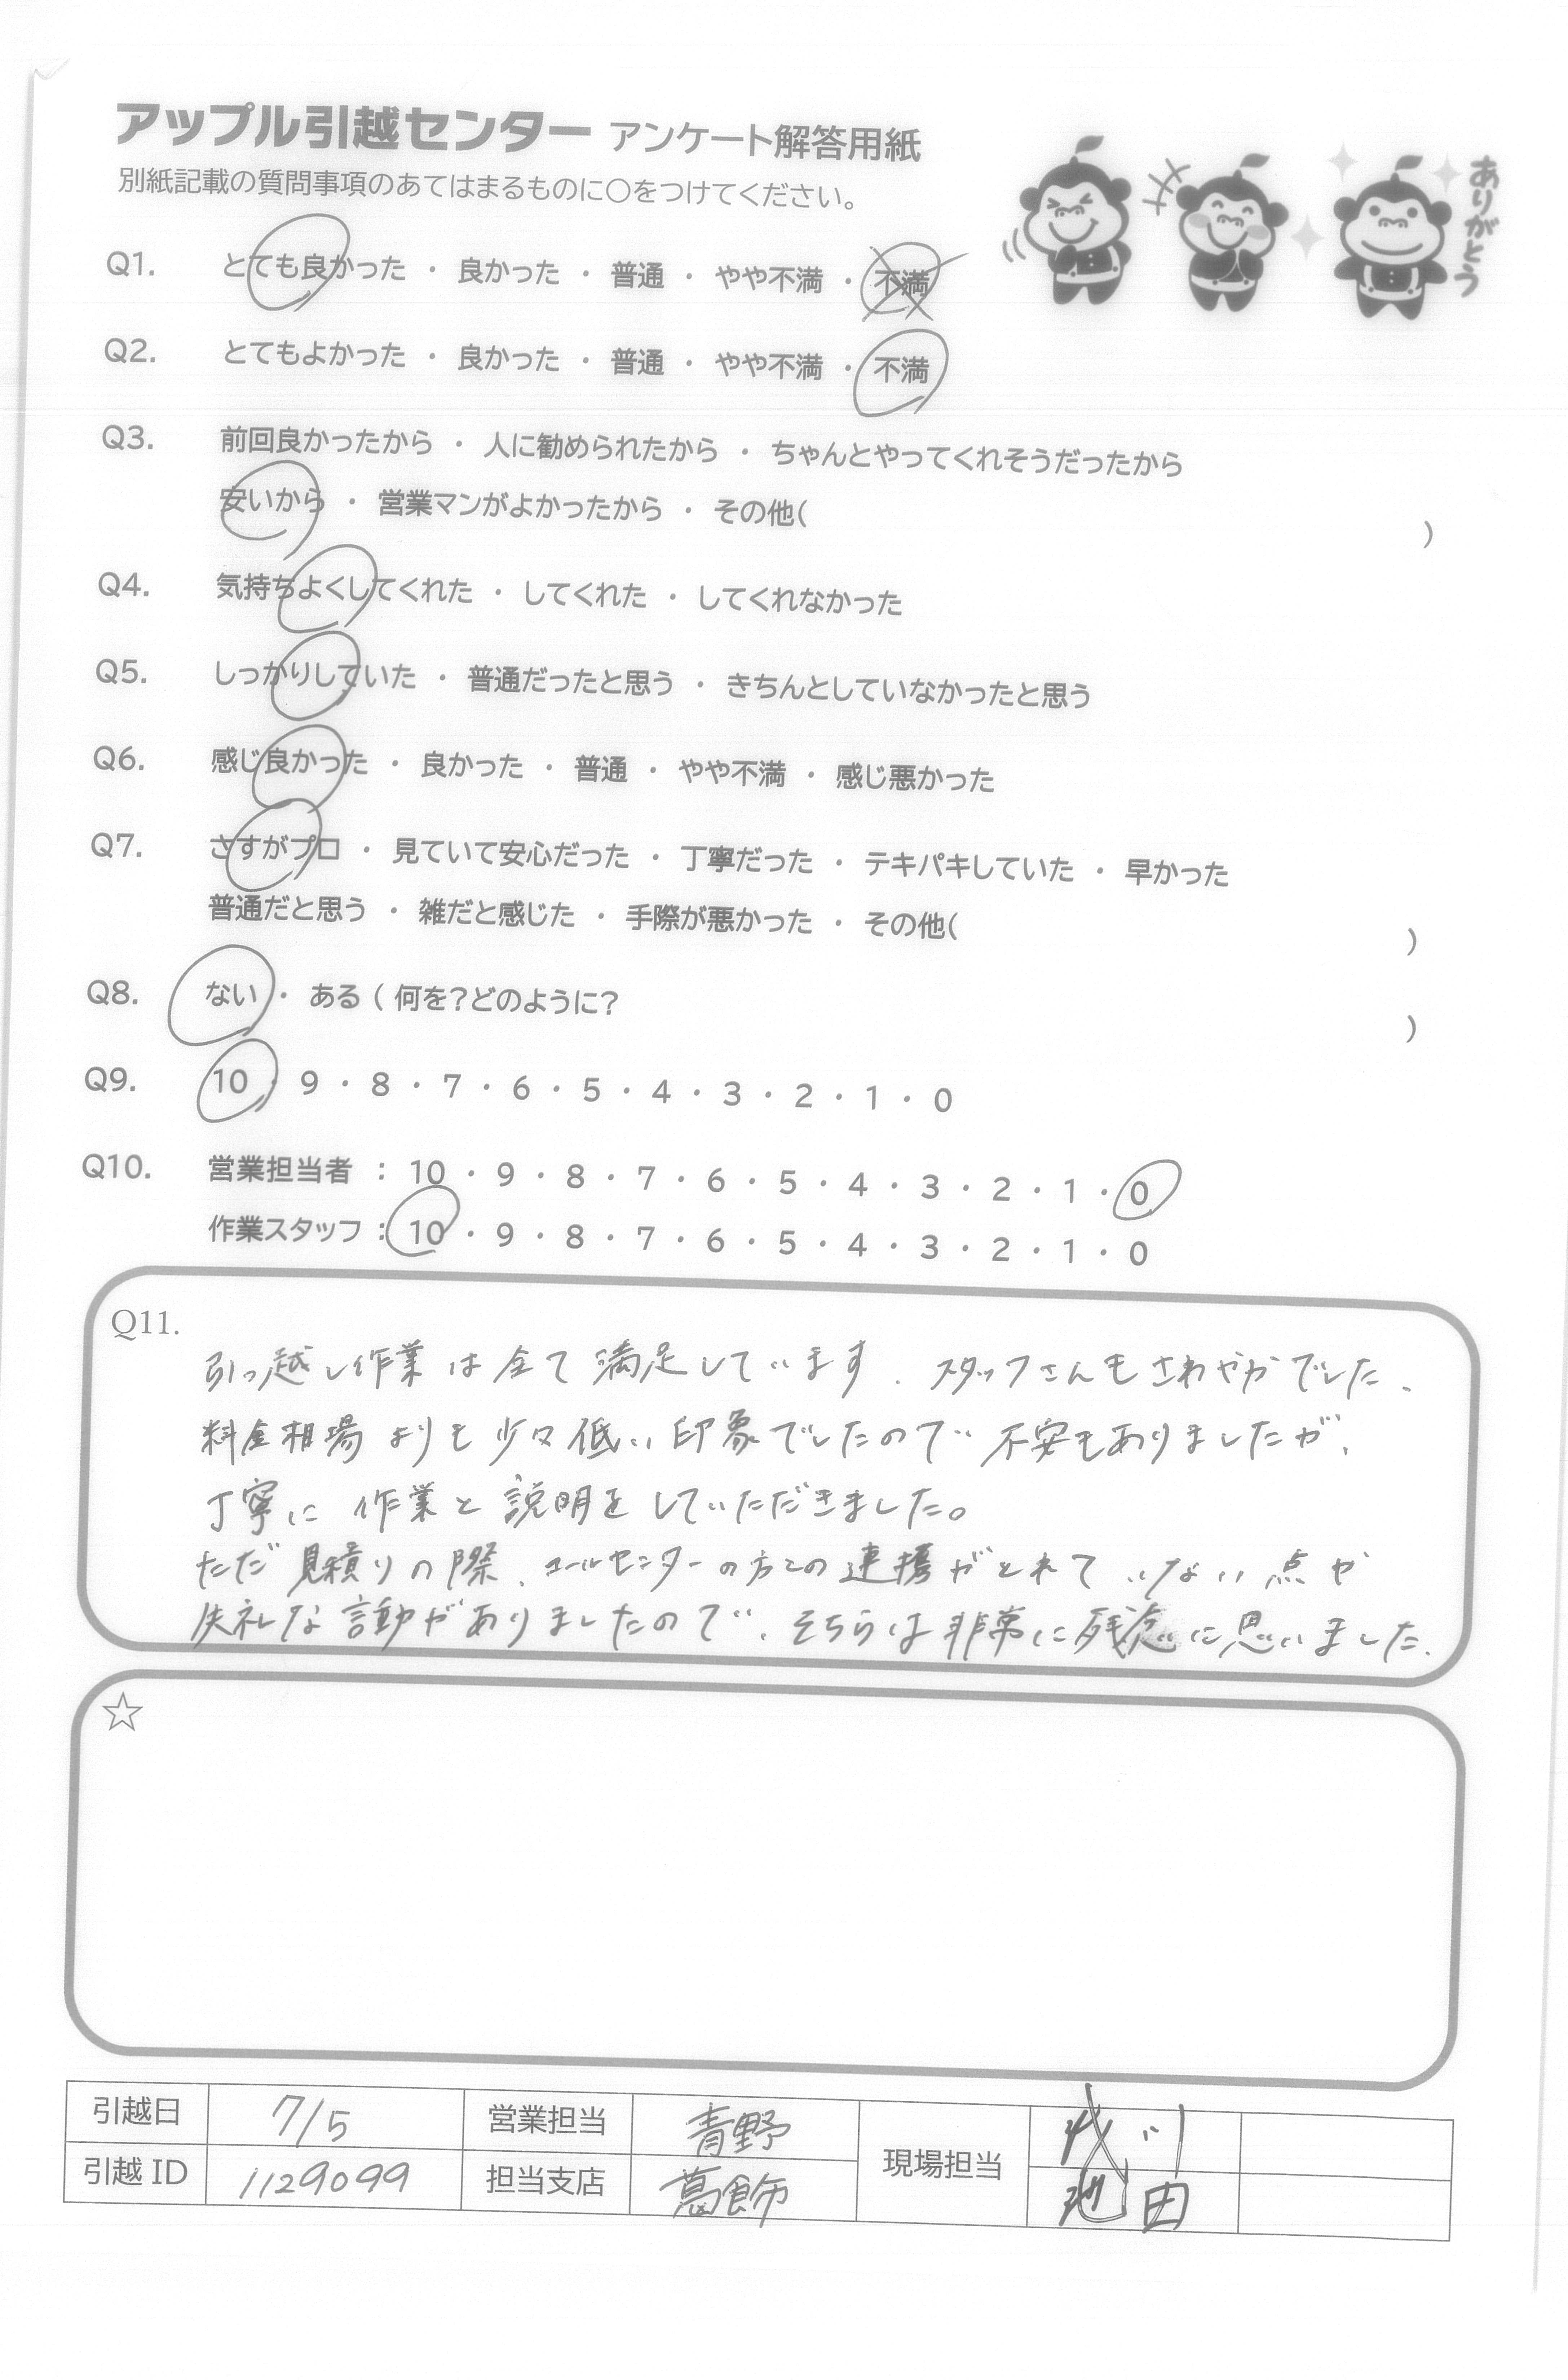 アップル引越センター アンケート解答用紙
別紙記載の質問事項のあてはまるものに○をつけてください。
ありがとう
Q1. とても良かった ・ 良かった ・ 普通 ・ やや不満 ・ 不満
Q2. とてもよかった ・ 良かった ・ 普通 ・ やや不満 ・ 不満
Q3. 前回良かったから ・ 人に勧められたから ・ ちゃんとやってくれそうだったから
安いから ・ 営業マンがよかったから ・ その他( )
Q4. 気持ちよくしてくれた ・ してくれた ・ してくれなかった
Q5. しっかりしていた ・ 普通だったと思う ・ きちんとしていなかったと思う
Q6. 感じ良かった ・ 良かった ・ 普通 ・ やや不満 ・ 感じ悪かった
Q7. さすがプロ ・ 見ていて安心だった ・ 丁寧だった ・ テキパキしていた ・ 早かった
普通だと思う ・ 雑だと感じた ・ 手際が悪かった ・ その他( )
Q8. ない ・ ある ( 何を?どのように? )
Q9. 10 ・ 9 ・ 8 ・ 7 ・ 6 ・ 5 ・ 4 ・ 3 ・ 2 ・ 1 ・ 0
Q10. 営業担当者 : 10 ・ 9 ・ 8 ・ 7 ・ 6 ・ 5 ・ 4 ・ 3 ・ 2 ・ 1 ・ 0
作業スタッフ : 10 ・ 9 ・ 8 ・ 7 ・ 6 ・ 5 ・ 4 ・ 3 ・ 2 ・ 1 ・ 0
Q11.
引っ越し作業は全て満足しています. スタッフさんもさわやかでした、
料金相場よりも少々低い印象でしたので不安もありましたが、
丁寧に作業と説明をしていただきました。
ただ見積りの際、コールセンターの方との連携がとれていない点や
失礼な言動がありましたので、そちらは非常に残念に思いました.
☆
引越日 7/5 営業担当 青野 現場担当
引越 ID 1129099 担当支店 葛飾 池田